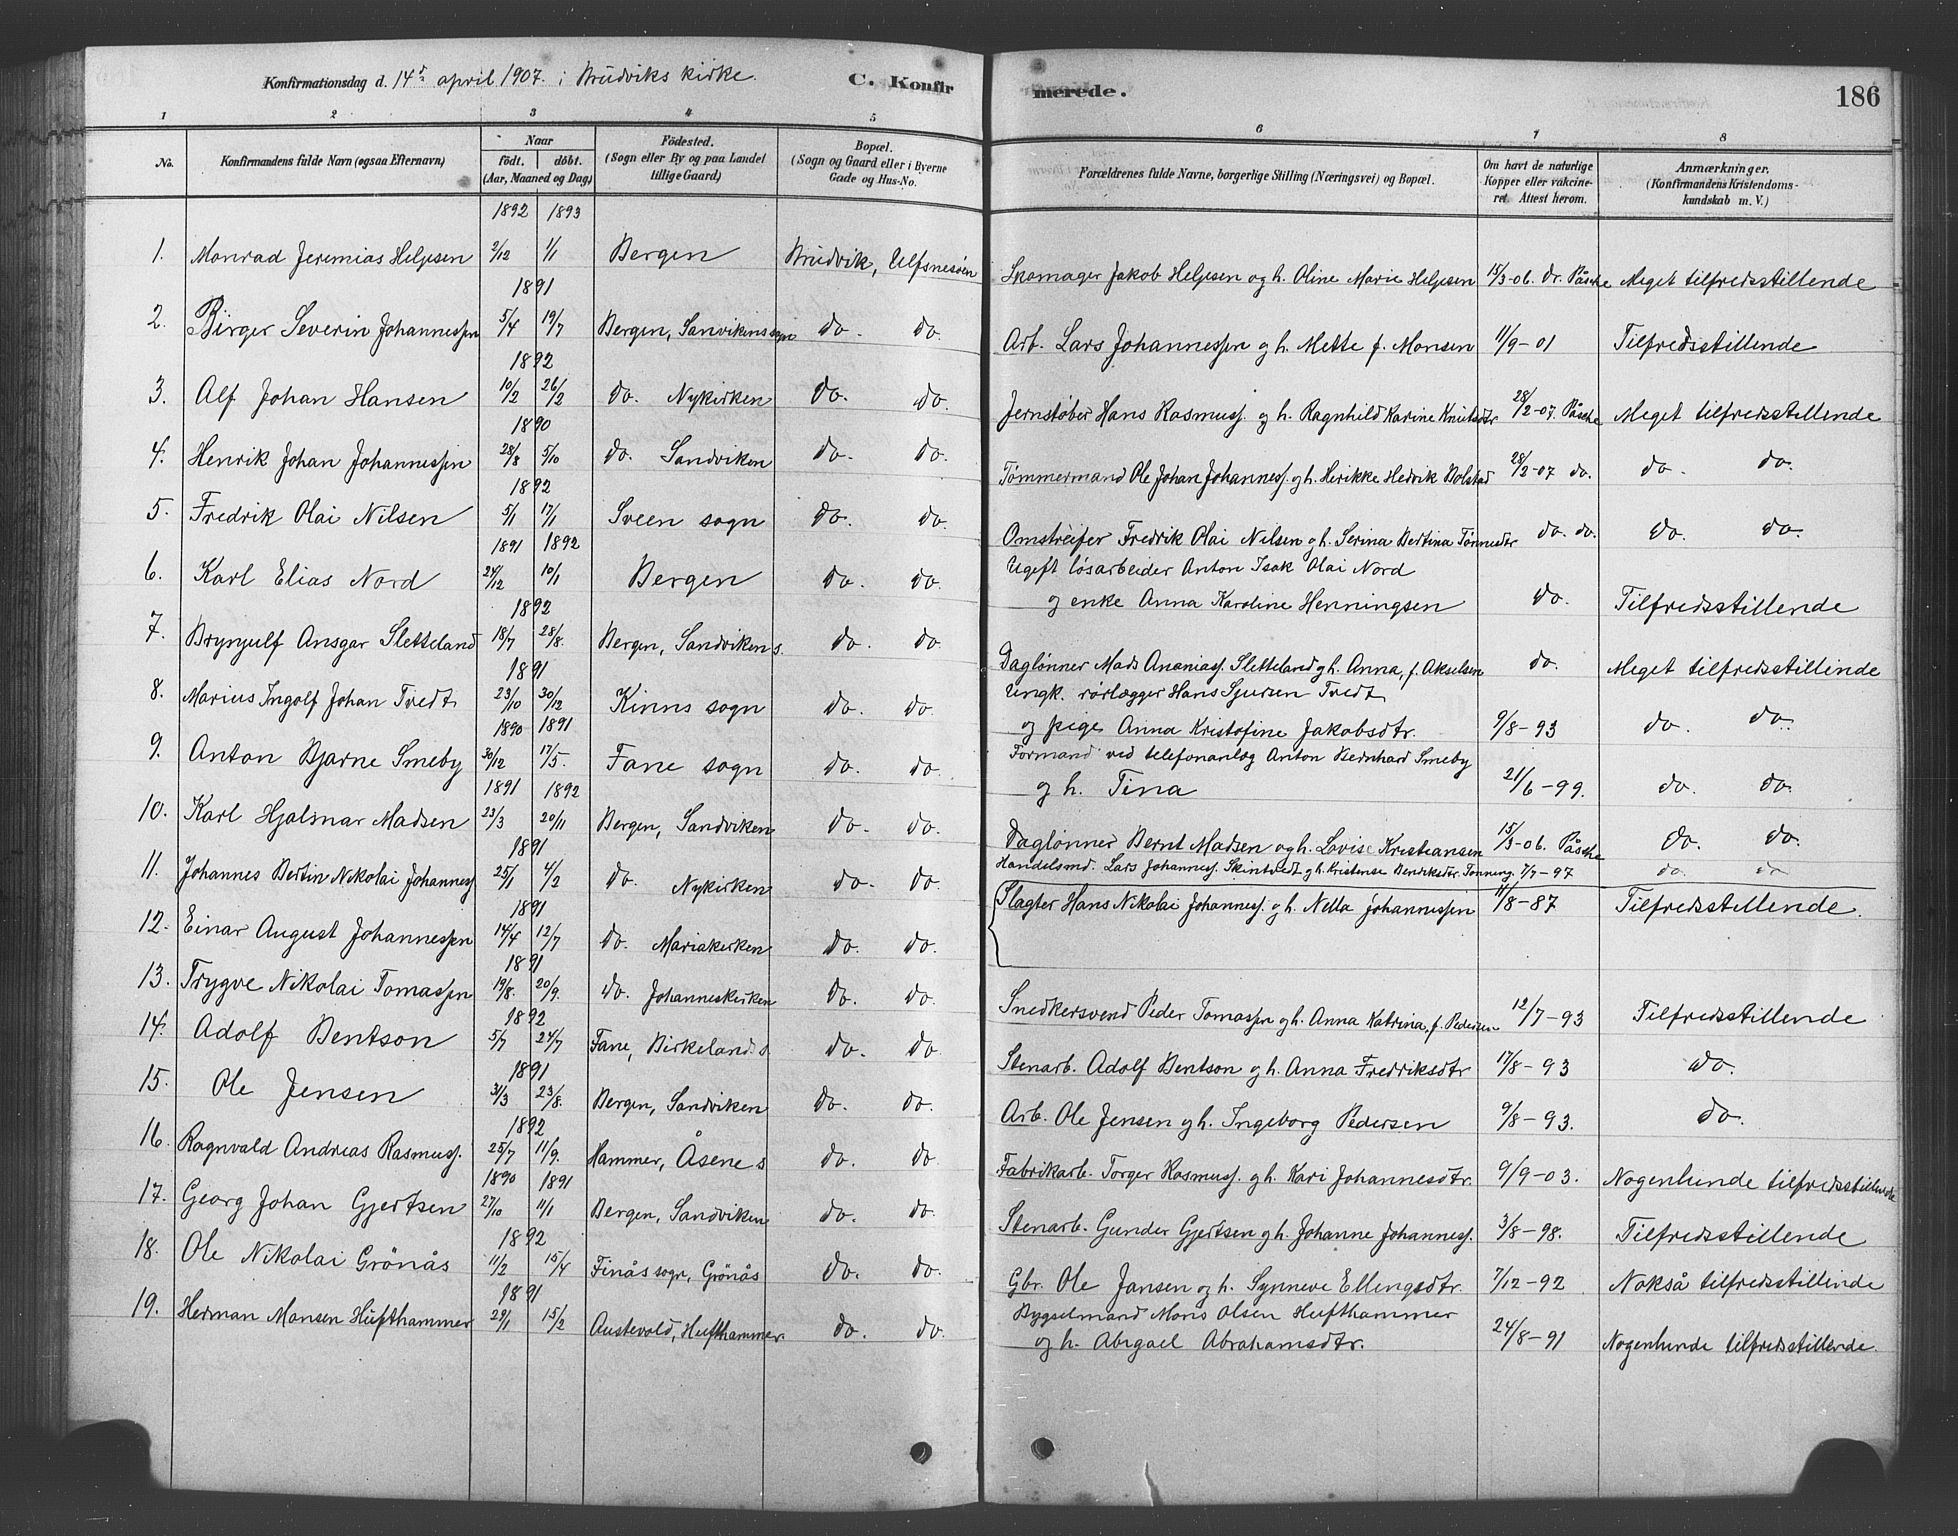 Konfirmationsdag d. 14de april 1907. i Brudviks kirke. C. Konfir merede. 186
1 2 3 4 5 6 7 8
No. Konfirmandens fulde Navn (ogsaa Efternavn) Naar født. døbt. (Aar, Maaned og Dag) Fødested. (Sogn eller By og paa Landet tillige Gaard) Bopæl. (Sogn og Gaard eller i Byerne Gade og Hus-No. Forældrenes fulde Navne, borgerlige Stilling (Næringsvei) og Bopæl. Om havt de naturlige Kopper eller vakcineret. Attest herom. Anmærkninger. (Konfirmandens Kristendomskundskab m. V.)
1892 1893
1. Monrad Jeremias Heljesen 2/12 1/1 Bergen Brudvik, Ulfsnesøen Skomager Jakob Heljesen og h. Oline Marie Heljesen 15/3-06. Dr. Påsche Meget tilfredsstillende
1891
2. Birger Severin Johannessen 5/4 19/7 Bergen, Sanvikens sogn do. do. Arb. Lars Johannessen og h. Mette f. Monsen 11/9-01 Tilfredsstillende
1892
3. Alf Johan Hansen 10/2 26/2 do. Nykirken do. do. Jernstøber Hans Rasmuss. og h. Ragnhild Karine Knutsdtr 28/2-07. Påsche Meget tilfredsstillende
1890
4. Henrik Johan Johannessen 28/8 5/10 do. Sandviken do. do. Tømmermand Ole Johan Johanness. og h. Henrikke Hedvik Bolstad 28/2-07 do. do. do.
1892
5. Fredrik Olai Nilsen 5/1 17/1 Sveen sogn do. do. Omstreifer Fredrik Olai Nilsen og h. Serina Bertina Tønnesdtr do. do. do. do.
1891 1892
6. Karl Elias Nord 24/12 10/1 Bergen do. do. Ugift løsarbeider Anton Isak Olai Nord
og enke Anna Karoline Henningsen do. Tilfredsstillende
1892
7. Brynjulf Ansgar Sletteland 18/7 28/8. Bergen, Sandviken s. do. do. Dagløner Mads Ananiass. Sletteland og h. Anna, f. Akselsen do. Meget tilfredsstillende
1891
8. Marius Ingolf Johan Tvedt 23/10 30/12 Kinns sogn do. do. Ungk. rørlægger Hans Sjursen Tvedt
og pige Anna Kristofine Jakobsdtr. 9/8-93 do. do.
1890 1891
9. Anton Bjarne Smeby 30/12 17/5. Fane sogn do. do. Formand ved telefonanlæg Anton Bernhard Smeby
og h. Tina 21/6-99. do. do.
1891 1892
10. Karl Hjalmar Madsen 23/3 20/11 Bergen, Sandviken do. do. Dagløner Bernt Madsen og h. Lovise Kristiansen 15/3-06. Påsche do. do.
1891
11. Johannes Bertin Nikolai Johanness 25/1 4/2 do. Nykirken do. do. Handelsmd. Lars Johanness. Skintvedt og h. Kristense Bendiksdtr. Tonning. 7/7-97 do. do.
1891
12. Einar August Johannessen 14/4 12/7 do. Mariakirken do. do. Slagter Hans Nikolai Johanness. og h. Nella Johannessen 11/8-87 Tilfredsstillende.
1891
13. Trygve Nikolai Tomassen 19/8. 20/9. do. Johanneskirken do. do. Snedkersvend Peder Tomassen og h. Anna Katrina, f. Pedersen 12/7-93 Tilfredsstillende
1892
14. Adolf Bentson 5/7 24/7 Fane, Birkeland s. do. do. Stenarb. Adolf Bentson og h. Anna Fredriksdtr 17/8-93 do.
1891
15. Ole Jensen 31/3 23/8. Bergen, Sandviken do. do. Arb. Ole Jensen og h. Ingeborg Pedersen 9/8-93. do.
1892
16. Ragnvald Andreas Rasmuss. 25/7 11/9. Hammer, Åsene s. do. do Fabrikarb. Torger Rasmuss. og h. Kari Johannesdtr. 9/9-03. Nogenlunde tilfredsstillende
1890 1891
17. Georg Johan Gjertsen 27/10 11/1 Bergen, Sandviken do. do. Stenarb. Gunder Gjertsen og h. Johanne Johanness. 3/8-98. Tilfredsstillende
1892
18. Ole Nikolai Grönås 11/2 15/4 Finås sogn, Grönås do. do. Gbr. Ole Jansen og h. Synneve Ellingsdtr. 7/12-92 Nokså tilfredsstillende
1891
19. Herman Monsen Hufthammer 29/1 15/2 Austevold, Hufthammer. do. do. Bygselmand Mons Olsen Hufthammer
og h. Abigael Abrahamsdtr. 24/8-91 Nogenlunde tilfredsstillende.